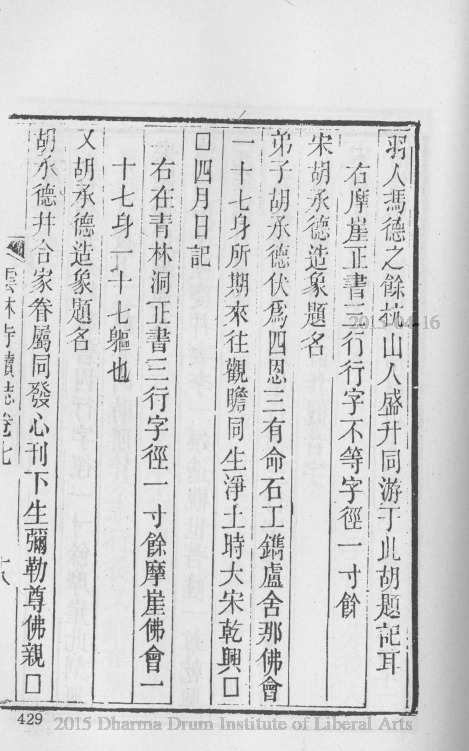 羽人馮德之餘杭山人盛升同游于此胡題記耳
右摩崖正書三行行字不等字徑一寸餘
宋胡承德造象題名
弟子胡承德伏爲四恩三有命石工鐫盧舍那佛會
一十七身所期來往觀瞻同生淨土時大宋乾興□
□四月日記
右在青林洞正書三行字徑一寸餘摩崖佛會一
十七身一十七軀也
又胡承德造象題名
胡承德幷合家眷屬同發心刊下生彌勒尊佛親□
雲林寺續誌卷七
十八
429
2015-04-16
2015 Dharma Drum Institute of Liberal Arts